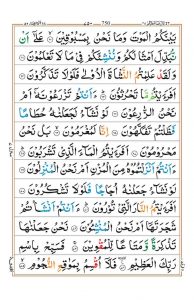 بَيْنَكُمُ الْمَوْتَ وَمَا نَحْنُ بِمَسْبُوْقِيْنَ عَلٰٓى اَنْ
نُّبَدِّلَ اَمْثَالَكُمْ وَنُنْشِئَكُمْ فِيْ مَا لَا تَعْلَمُوْنَ
وَلَقَدْ عَلِمْتُمُ النَّشْاَةَ الْاُوْلٰى فَلَوْلَا تَذَكَّرُوْنَ
اَفَرَءَيْتُمْ مَّا تَحْرُثُوْنَ ءَاَنْتُمْ تَزْرَعُوْنَهٗٓ اَمْ
نَحْنُ الزّٰرِعُوْنَ لَوْ نَشَآءُ لَجَعَلْنٰهُ حُطَامًا
فَظَلْتُمْ تَفَكَّهُوْنَ اِنَّا لَمُغْرَمُوْنَ بَلْ نَحْنُ
مَحْرُوْمُوْنَ اَفَرَءَيْتُمُ الْمَآءَ الَّذِيْ تَشْرَبُوْنَ
ءَاَنْتُمْ اَنْزَلْتُمُوْهُ مِنَ الْمُزْنِ اَمْ نَحْنُ الْمُنْزِلُوْنَ
لَوْ نَشَآءُ جَعَلْنٰهُ اُجَاجًا فَلَوْلَا تَشْكُرُوْنَ
اَفَرَءَيْتُمُ النَّارَ الَّتِيْ تُوْرُوْنَ ءَاَنْتُمْ اَنْشَاْتُمْ
شَجَرَتَهَآ اَمْ نَحْنُ الْمُنْشِـُٔوْنَ نَحْنُ جَعَلْنٰهَا
تَذْكِرَةً وَّمَتَاعًا لِّلْمُقْوِيْنَ فَسَبِّحْ بِاسْمِ
رَبِّكَ الْعَظِيْمِ فَلَآ اُقْسِمُ بِمَوٰقِعِ النُّجُوْمِ